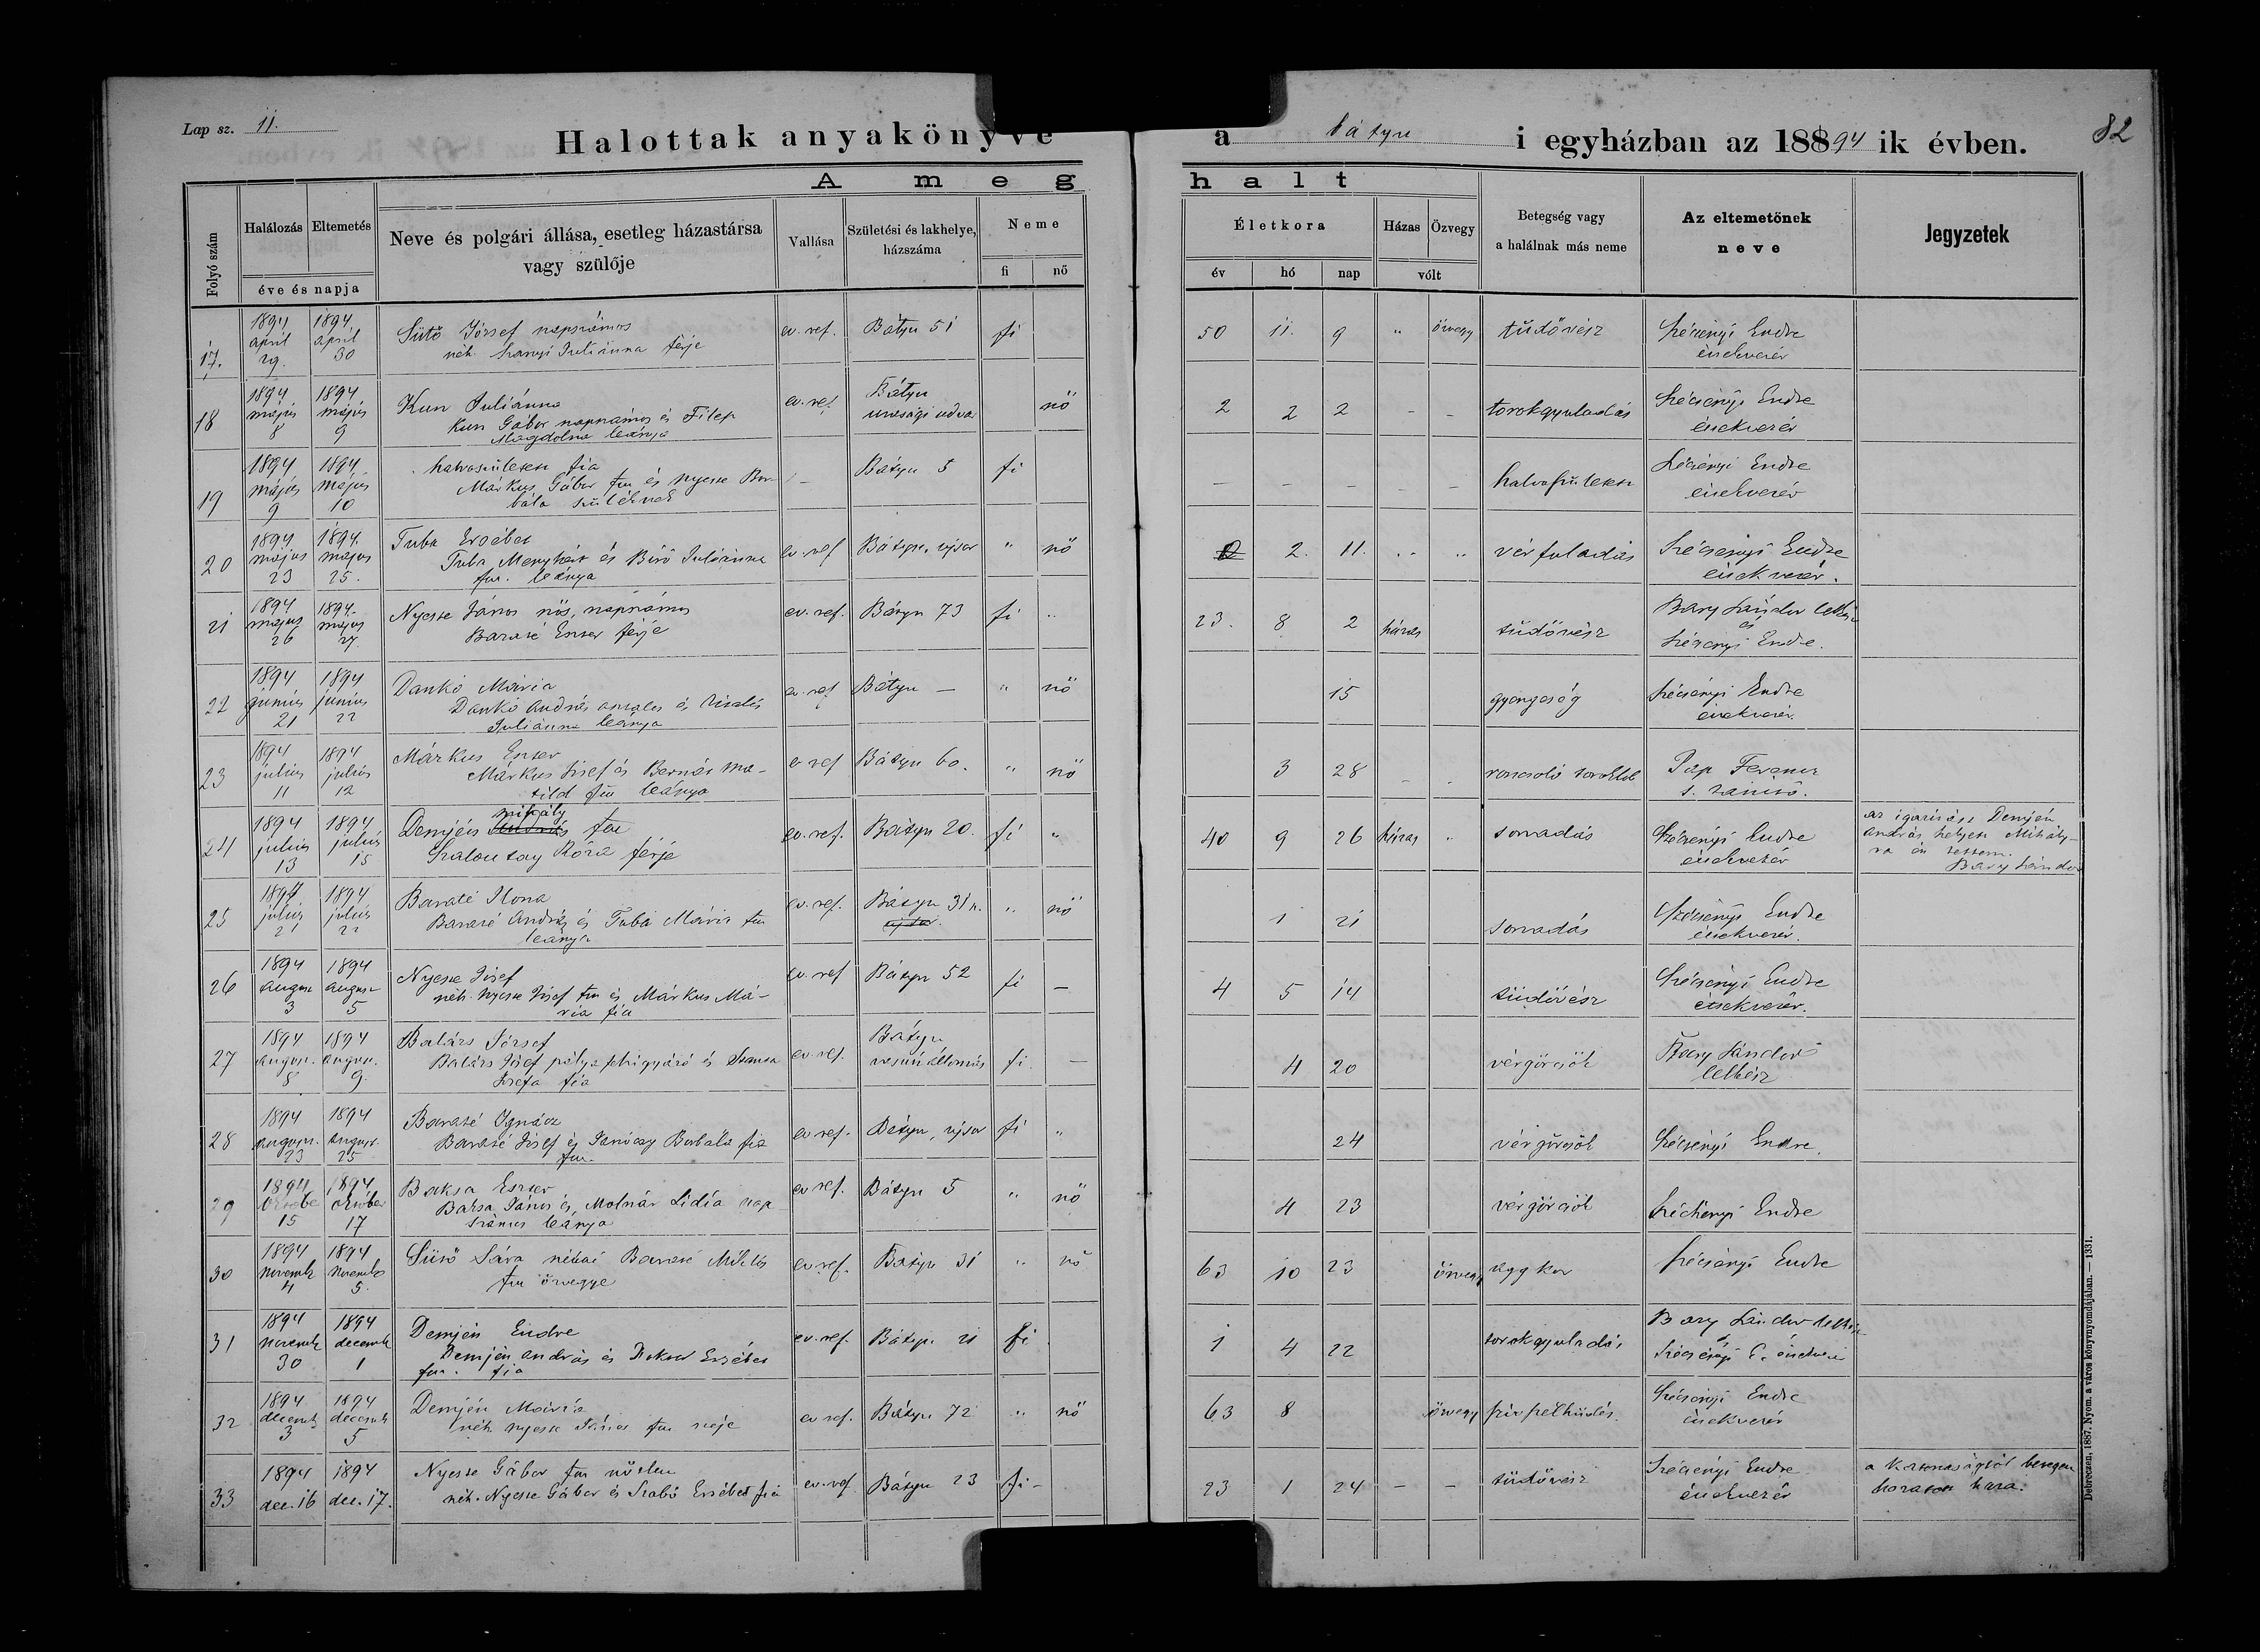 Lap sz. 11.
Halottak anyakönyve a bátyu i egyházban az 18894 ik évben.
82
A meghalt
Folyó szám
Halálozás Eltemetés
éve és napja
Neve és polgári állása, esetleg házastársa
vagy szülője
Vallása
Születési és lakhelye,
házszáma
Neme
fi nő
Életkora
év hó nap
Házas Özvegy
vólt
Betegség vagy
a halálnak más neme
Az eltemetőnek
neve
Jegyzetek
17. 1894 april 29. 1894. april 30
Sütő József napszámos
néh. Juliánna férje
ev. ref. Bátyu 51 fi
50 11. 9 " özvegy tüdővész
Szécsényi Endre
énekvezér
18 1894 május 8 1894 május 9
Kun Juliánna
Kun Gábor napszámos és Filep
Magdolna leánya
ev. ref. Bátyu
urasági udvar nő
2 2 2 - - torokgyuladás
Szécsényi Endre
énekvezér
19 1894 május 9 1894 május 10
halvaszületett fia
Márkus Gábor fm és Nyeste Bor-
bála szülőknek
- Bátyu 5 fi
- - - - - halvaszületett
Szécsényi Endre
énekvezér
20 1894 május 23 1894. május 25.
Tuba Erzébet
Tuba Menyhért és Biró Juliánna
fm. leánya
ev. ref Bátyu, ujsor " nő
2. 11. " " vér fuladás
Szécsényi Endre
énekvezér.
21 1894 május 26 1894. május 27.
Nyeste János nős, napszámos
Baraté Eszter férje
ev. ref. Bátyu 73 fi "
23. 8 2 házas tüdővész
Bary Sándor lelkész
és
Szécsényi Endre.
22 1894 június 21 1894 június 22
Dankó Mária
Dankó András és
Juliánna leánya
ev. ref Bátyu - " nő
15 gyengeség
Szécsényi Endre
énekvezér.
23 1894 julius 11 1894 julius 12
Márkus Eszter
Márkus József és Bernát Ma-
tild fm leánya
ev ref Bátyu 60. " nő
3 28 - - roncsoló toroklob
Pap Ferencz
s. tanitó.
24 1894 július 13 1894 július 15
Mihály
Demjén András fm
Szalontay Róza férje
ev. ref. Bátyu 20. fi "
40 9 26 házas " sorvadás
Szécsényi Endre
énekvezér
az igazitást Demjén
András helyett Mihály-
ra én tettem.
Bary Sándor
25 1894 július 21 1894 július 22
Baraté Ilona
Baraté András és Tuba Mária fm
leánya
ev. ref. Bátyu 31 n.
ujsor. " nő
1 21 sorvadás
Szécsényi Endre
énekvezér.
26 1894 august 3 1894 august 5
Nyeste József
néh. Nyeste József fm és Márkus Má-
ria fia
ev. ref Bátyu 52 fi -
4 5 14 tüdővész
Szécsényi Endre
énekvezér.
27 1894 august. 8 1894 august. 9.
Balázs József
Balázs József pálya és
fia
ev. ref. Bátyu
vasúti állomás fi. -
4 20 vérgörcsök
Bary Sándor
lelkész
28 1894 august. 23 1894 august. 25
Baraté Ignácz
Baraté József és Borbála fia
fm.
ev ref. Bátyu, ujsor fi "
24 vérgörcsök
Szécsényi Endre.
29 1894 október 15 1894 október 17
Baksa Eszter
Baksa János és Molnár Lidia nap-
számos leánya
ev ref. Bátyu 5 " nő
4 23 vérgörcsök
Szécsényi Endre
30 1894 novemb 4 1894 novemb 5.
Sütő Sára néhai Baraté Miklós
fm özvegye
ev. ref. Bátyu 31 " nő
63 10 23 özvegy agg kor
Szécsényi Endre
31 1894 novemb 30 1894 decemb 1
Demjén Endre
Demjén András és Erzsébet
fm. fia
ev. ref. Bátyu 21 fi.
1 4 22 torokgyuladás
Bary Sándor lelkész
és
Szécsényi E. énekvezér
32 1894 decemb 3 1894 decemb 5
Demjén Mária
néh. Nyeste János fm neje
ev ref. Bátyu 72 " nő
63 8 özvegy szívszélhüdés.
Szécsényi Endre
énekvezér
33 1894 dec. 16 1894 dec. 17.
Nyeste Gábor fm nőtlen
néh. Nyeste Gábor és Szabó Erzsébet fia
ev. ref Bátyu 23 fi -
23 1 24 - - tüdővész
Szécsényi Endre
énekvezér
a katonaságtól betegen
haza.
Debreczen, 1887. Nyom. a város könyvnyomdájában. — 1331.